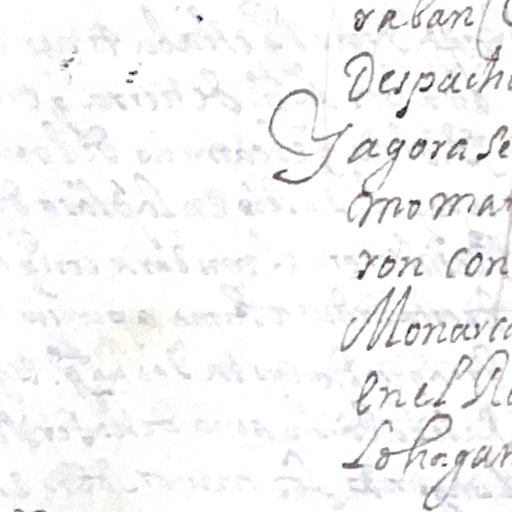 raban
Despacho
Y agora se
mo mat
ron con
Monarca
en el Re
lo hagan